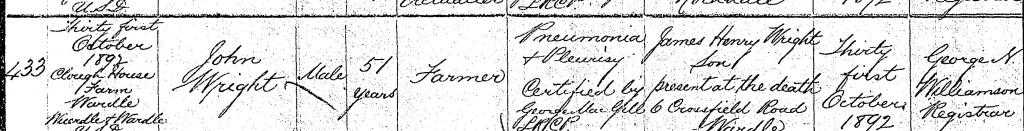 U.S.D.
L.R.C.P.
1892
433
Thirty first
October
1892
Clough House
Farm
Wardle
Wuerdle & Wardle
U.S.D.
John
Wright
Male
51
years
Farmer
Pneumonia
& Pleurisy
Certified by
George Mac Gill
L.R.C.P.
James Henry Wright
Son
present at the death
6 Crossfield Road
Wardle
Thirty
first
October
1892
George N.
Williamson
Registrar